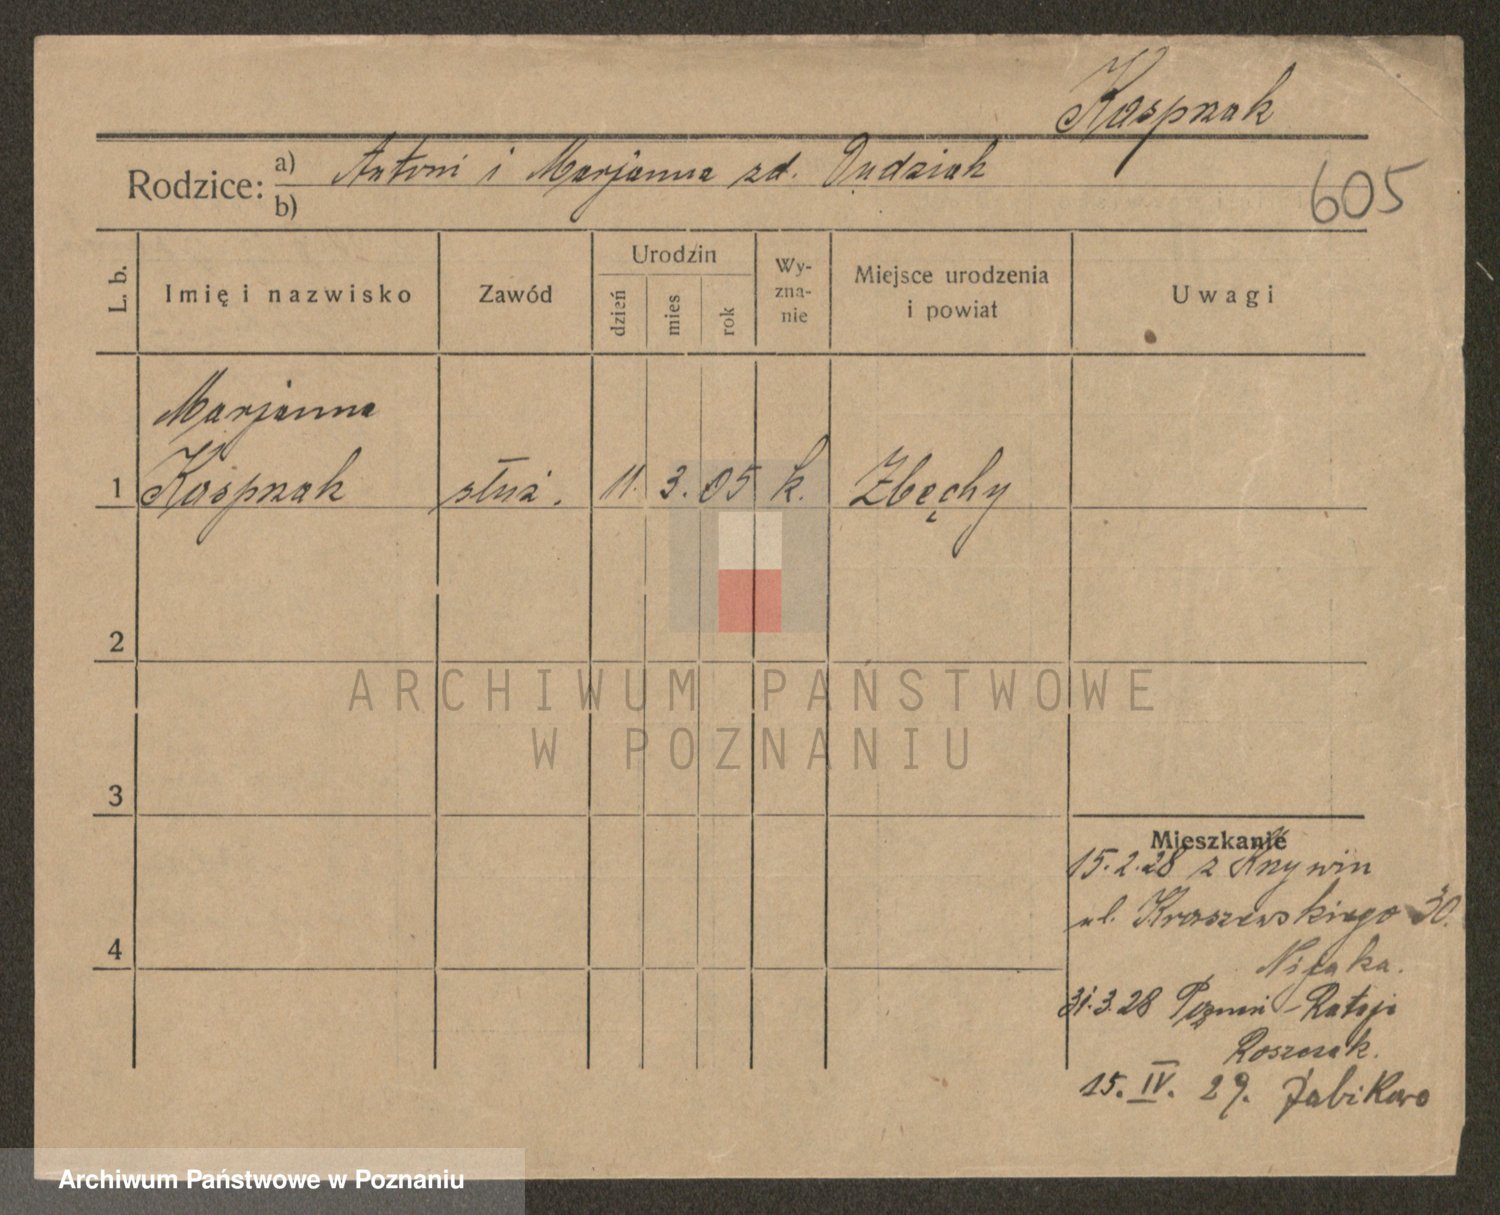 Kasprzak
Rodzice: a) Antoni i Marjanna zd. Dudziak
b)
605
L. b.
Imię i nazwisko
Zawód
Urodzin
dzień
mies
rok
Wy-
zna-
nie
Miejsce urodzenia
i powiat
Uwagi
Marjanna
1 Kasprzak służ. 11. 3. 05 k. Zbęchy
2
3
4
Mieszkanie
15.2.28 z Krzywin
ul. Kraszewskiego 30.
31.3.28 Poznań-Rataje
15. IV. 29. Żabikowo
ARCHIWUM PAŃSTWOWE
W POZNANIU
Archiwum Państwowe w Poznaniu